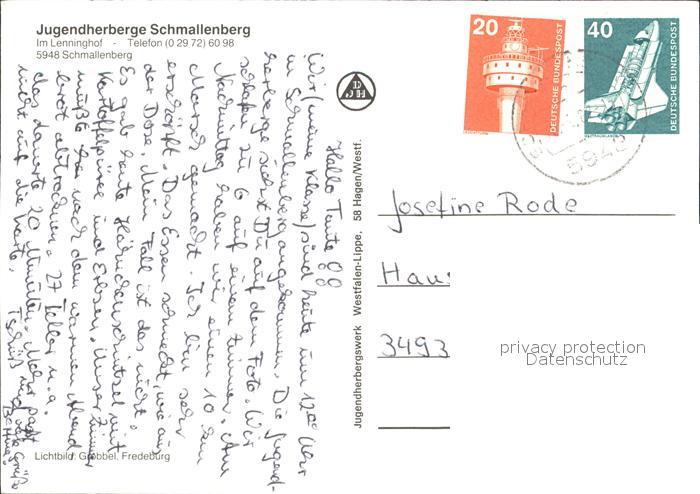 Jugendherberge Schmallenberg
Im Lenninghof - Telefon (0 29 72) 60 98
5948 Schmallenberg
20
DEUTSCHE BUNDESPOST
LEUCHTTURM
40
DEUTSCHE BUNDESPOST
WELTRAUMLABOR
5948
D
J H
Hallo Tante
Wir (meine Klasse) sind heute um 12⁰⁰ Uhr
in Schmallenberg angekommen. Die Jugend-
herberge siehst Du auf dem Foto. Wir
schlafen zu 6 auf einem Zimmer. Am
Nachmittag haben wir einen 10 km
Marsch gemacht. Ich bin sehr
erschöpft. Das Essen schmeckt, wie aus
der Dose. Mein Fall ist das nicht.
Es gab heute Hähnchenschnitzel mit
Kartoffelpüree und Erbsen. Unser Zimmer
mußte nach dem warmen Abend
brot abtrocknen. 27 Teller u.a.
das dauerte 20 Minuten. Mehr paßt
nicht auf die Karte.
Tschüß und viele Grüße
Bettina
Jugendherbergswerk Westfalen-Lippe, 58 Hagen/Westf.
Josefine Rode
Hau
3493
privacy protection
Datenschutz
Lichtbild: Grobbel, Fredeburg